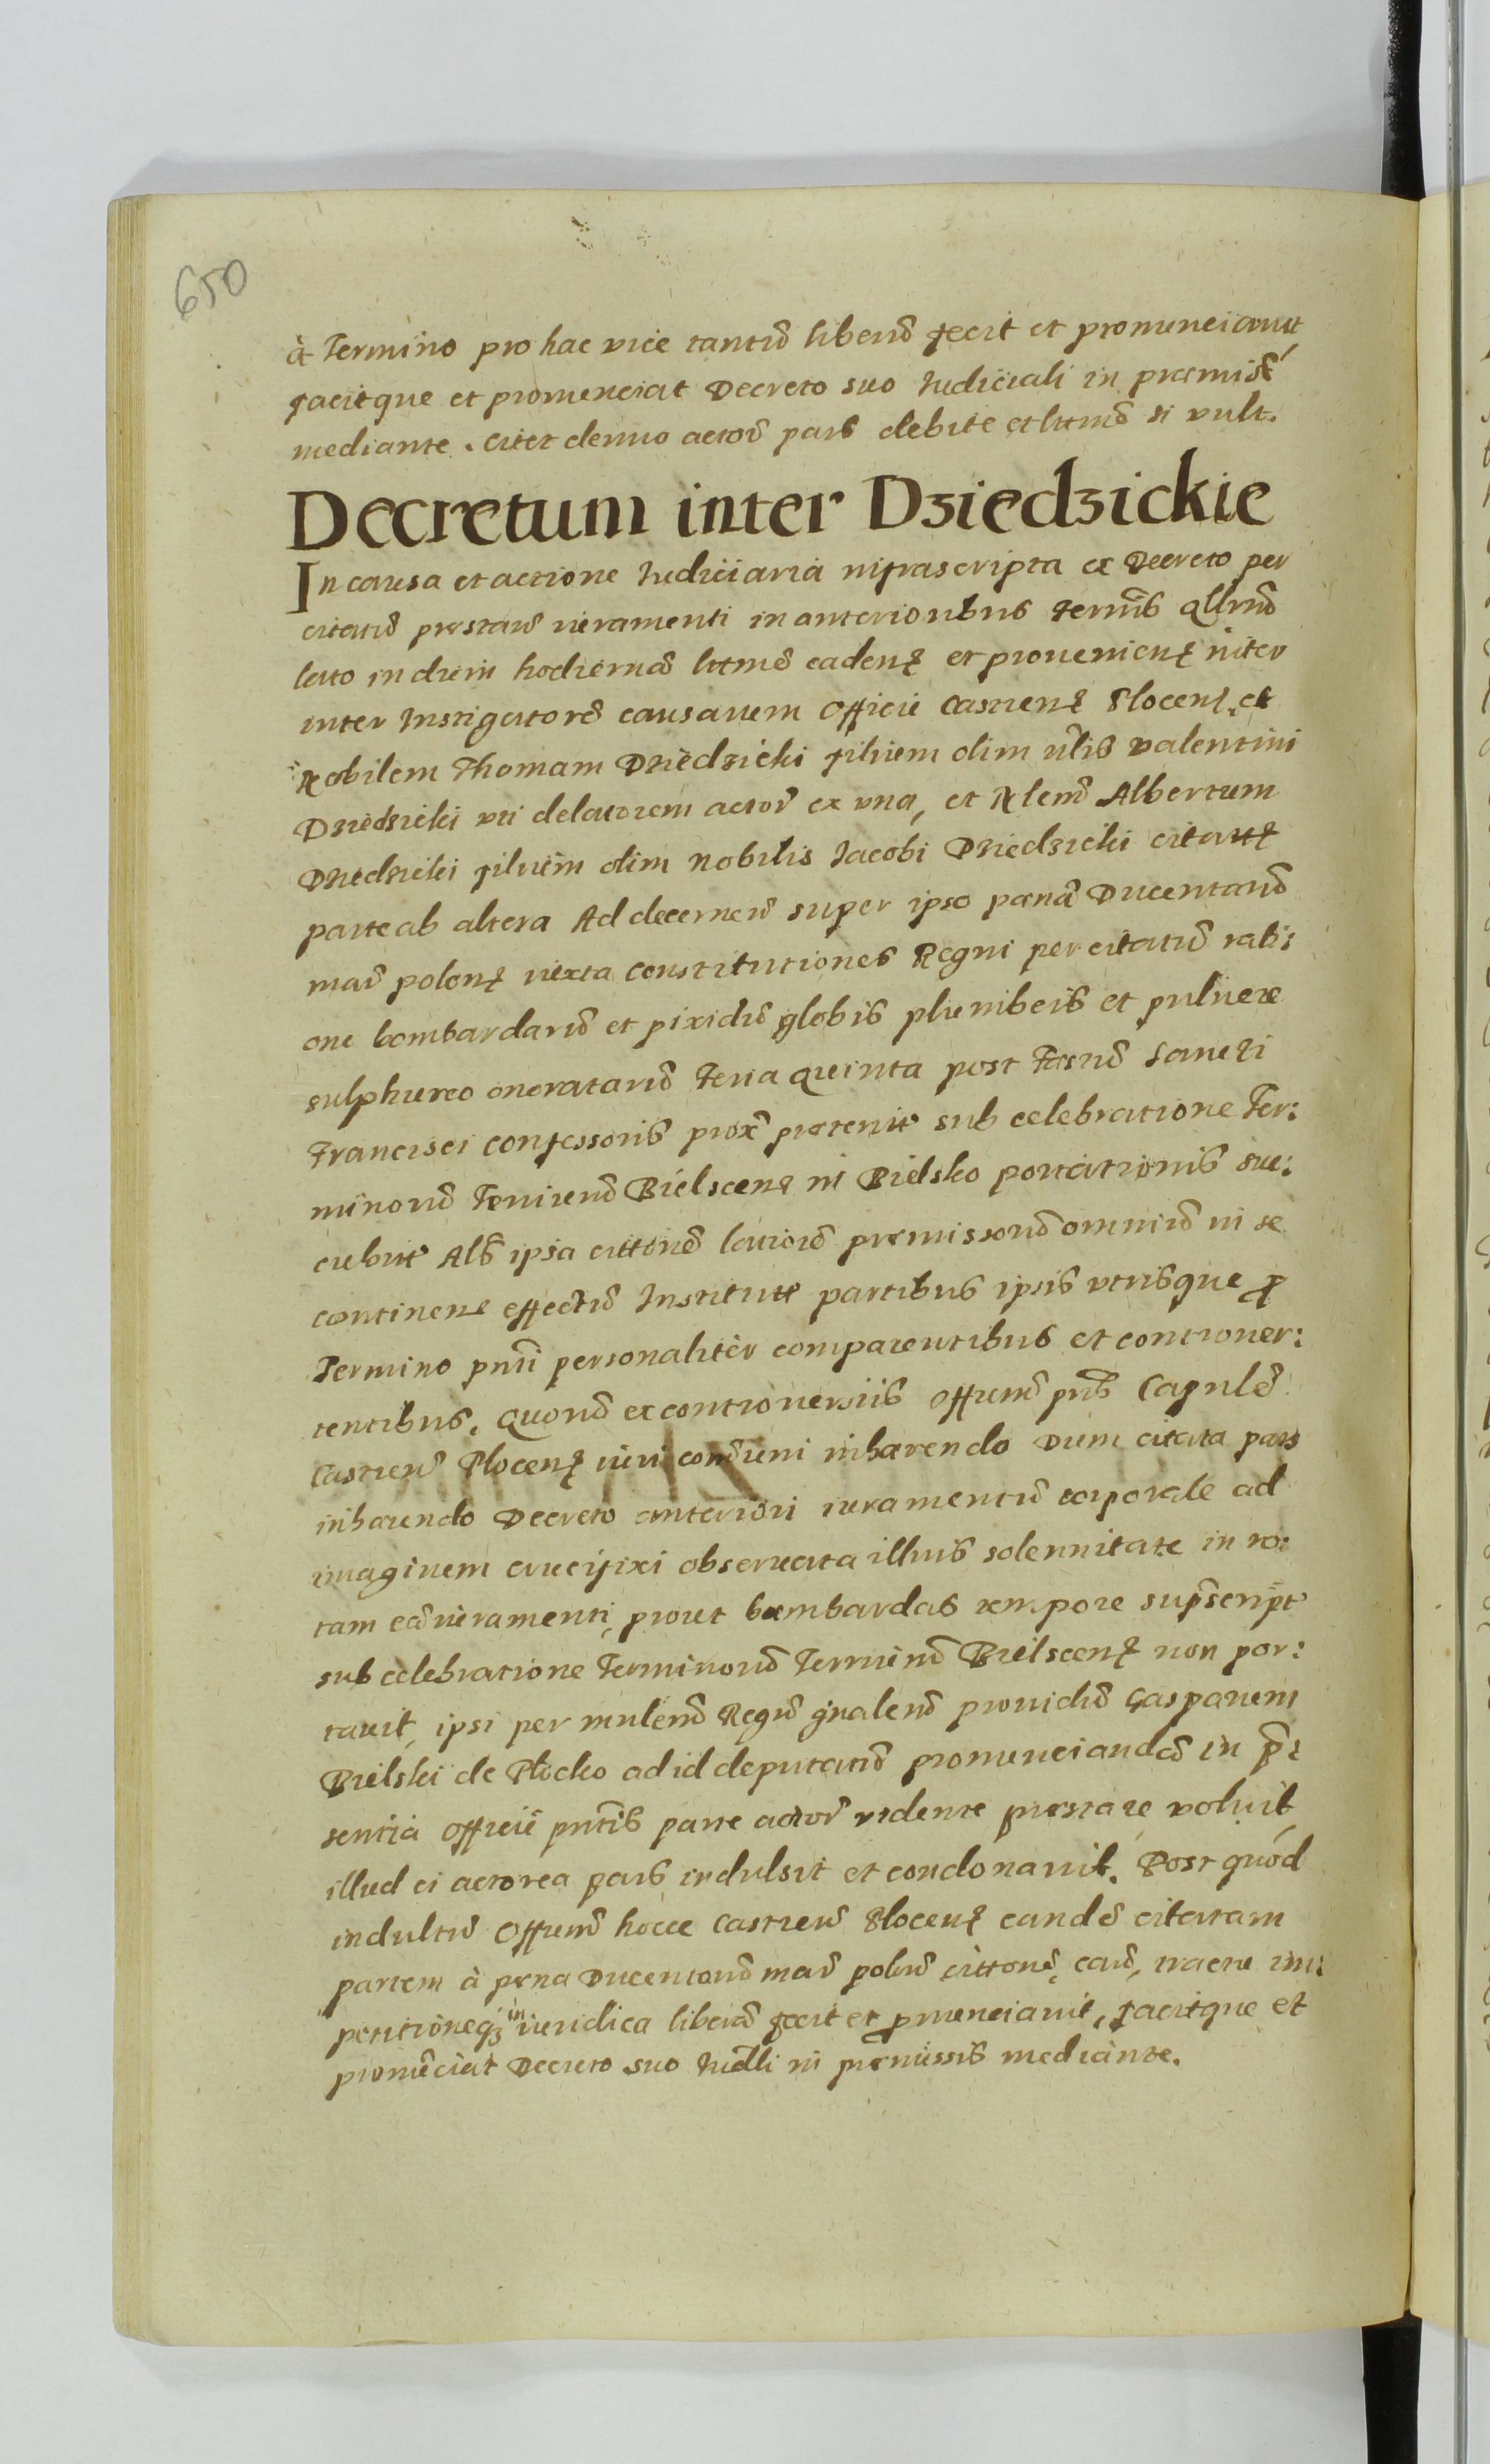 650
à Termino pro hac vice tantũ liberũ fecit et pronunciavit
facitque et pronunciat Decreto suo Iudiciali in præmiss̃
mediante. citet denuo actor̃ pars debite et lttmẽ si vult.
Decretum inter Dziedzickie
In causa et actione Iudiciaria infrascripta ex Decreto per
citatũ præstan̄ iuramenti in anterioribus Termis̃
lato in diem hodiernã lttmẽ caden̄ et provenien̄ inter
inter Instigatorẽ causarum Officii Castren̄ Plocen̄, et
Nobilem Thomam Dziedzicki filium olim nl̃is Valentini
Dziedzicki uti delatorem actor̃ ex una, et Nlemũ Albertum
Dziedzicki filium olim Nobilis Iacobi Dziedzicki citatũ
parte ab altera Ad decernen̄ super ipso pœnã Ducentarũ
mar̃ polon̄ iuxta constitutiones Regni per citatũ rati:
one bombardarũ et pixidũ globis plumbeis et pulvere
sulphureo oneratarũ Feria Quinta post Festũ Sancti
Francisci Confessoris prox̃ præterit̃ sub celebratione Ter:
minorũ Terrnrũ Bielscen̄ in Bielsko portationis sue:
cubit̃ Als̃ ipsa cittonẽ latiorẽ præmissorũ omniũ in se
continen̄ effectũ Institut̃ partibus ipsis utrisque p̃
Termino pnti personaliter comparentibus et controver:
tentibus. Quorũ ex controversiis Offium̃ pns̃ Capnle
Castren̄ Plocen̄ iuri com̃uni inhærendo Dum citata pars
inhærendo Decreto anteriori iuramentũ corporale ad
imaginem crucifixi observata illius solennitate in ro:
tam eã iuramenti, prout bombardas tempore suprascript̃
sub celebratione Terminorũ Terrnrũ Bielscen̄ non por:
tavit, ipsi per mnlemũ Regiũ gnalemũ providũ Gasparum
Bielski de Plocko ad id deputatũ pronunciandã in præ:
sentia Officii pntis̃ parte actor̃ vidente præstare voluit,
illud ei actorea pars indulsit et condonavit. Post quod
indultũ Offium̃ hocce Castren̄ Plocen̄ eandẽ citatam
partem à pœna Ducentarũ mar̃ polon̄ cittonẽ, caũ, tractu im:
petitioneq; in iuridica liberã fecit et p̃nunciavit, facitque et
pronunciat Decreto suo Iudlli in præmissis mediante.